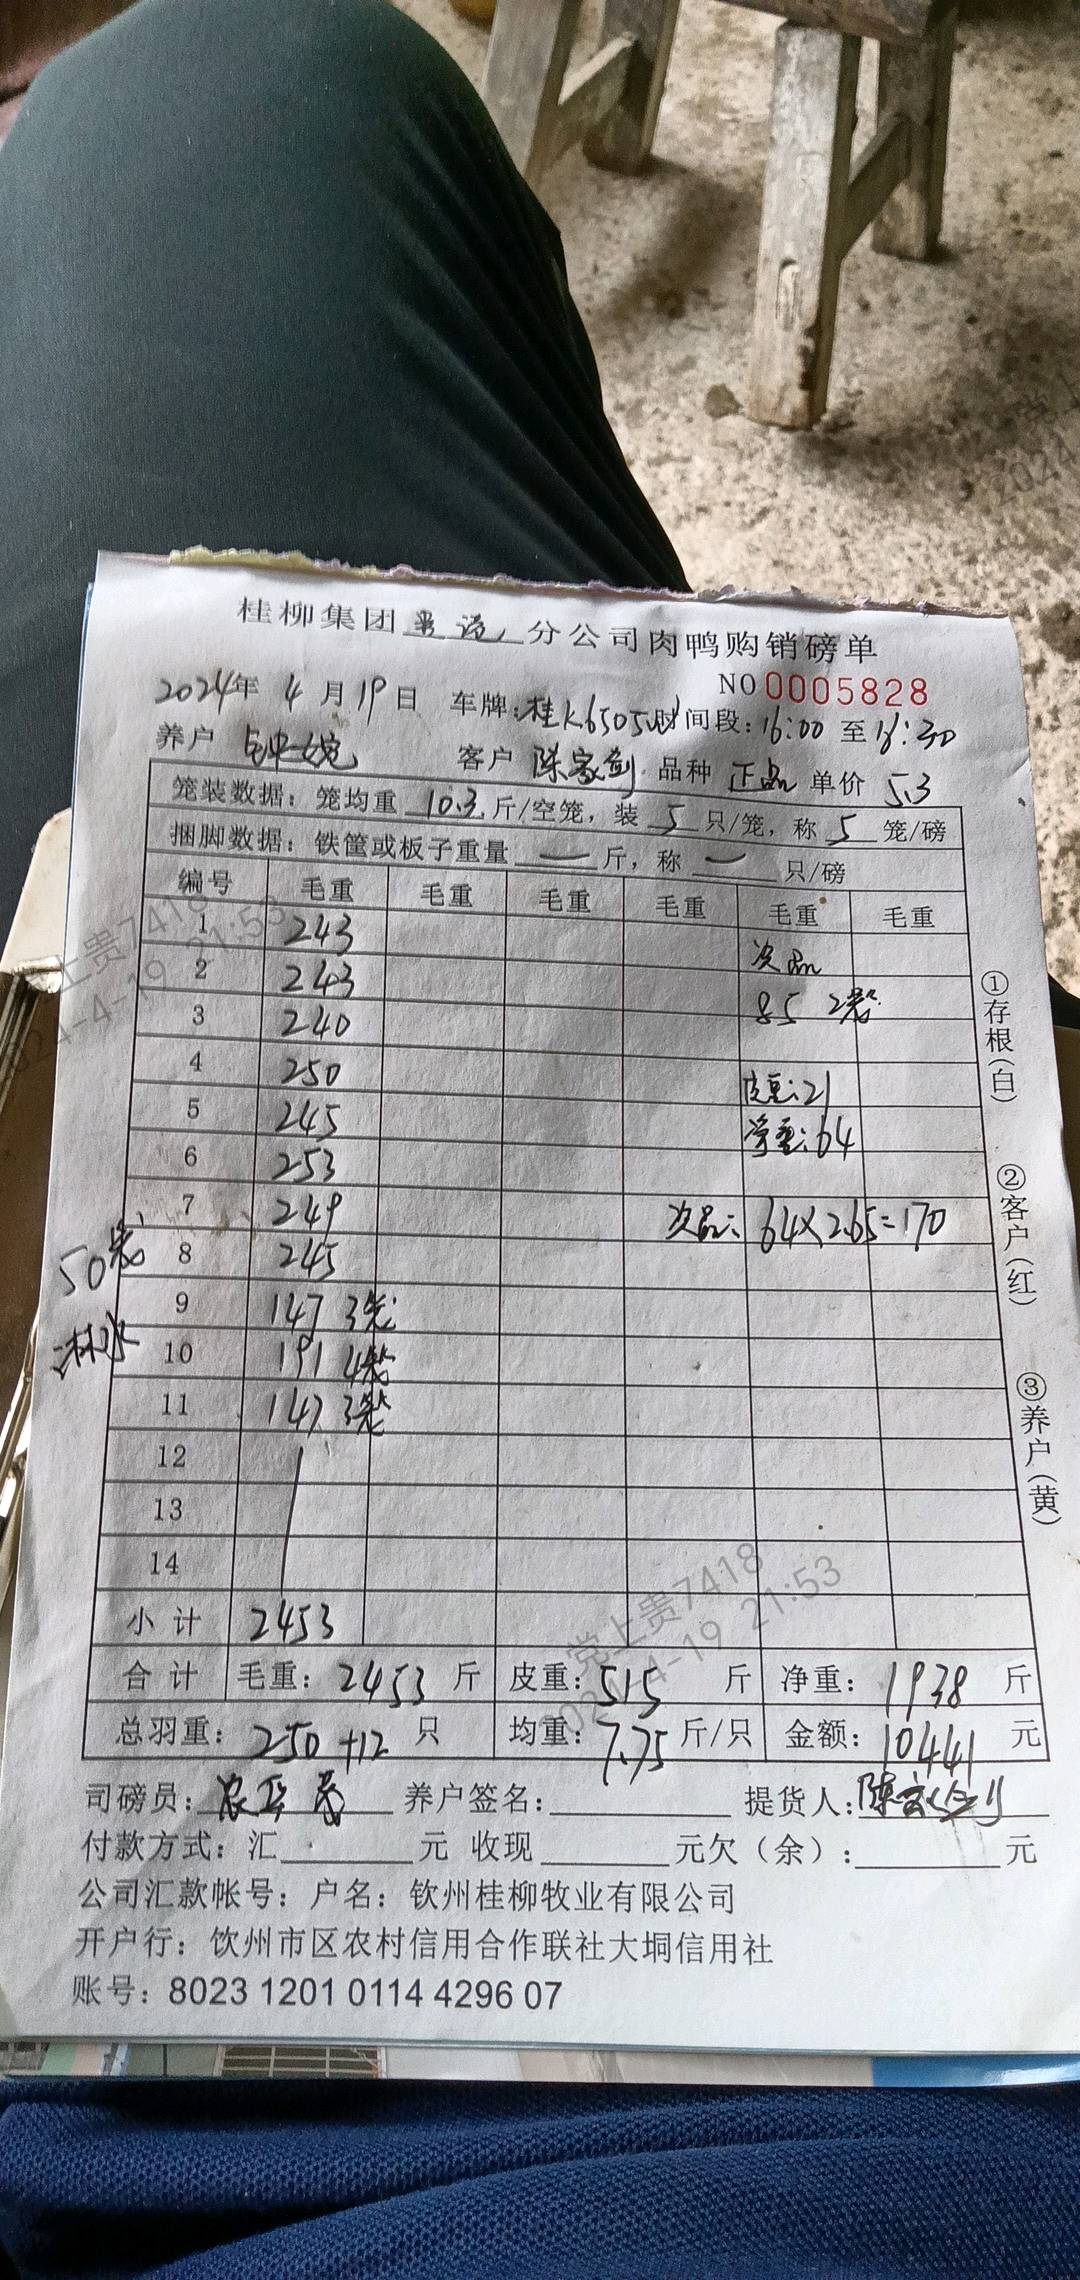 桂柳集团 分公司肉鸭购销磅单
NO 0005828
2024年 4月19日 车牌:桂K6505 时间段:16:00 至16:30
养户 钟婉 客户 陈家剑 品种 正品 单价 5.3
笼装数据:笼均重 10.3 斤/空笼,装 5 只/笼,称 5 笼/磅
捆脚数据:铁筐或板子重量 — 斤,称 — 只/磅
编号 毛重 毛重 毛重 毛重 毛重 毛重
1 243
2 243 次品
3 240 85 2笼
4 250
5 245 皮重:21
6 253 净重:64
7 249 次品: 64×2.65=170
8 245
50笼
淋水
9 147 3笼
10 191 4笼
11 147 3笼
12
13
14
小计 2453
合计 毛重:2453 斤 皮重:515 斤 净重:1938 斤
总羽重:250+12 只 均重:7.75 斤/只 金额:10441 元
司磅员: 养户签名: 提货人:陈家剑
付款方式:汇 元 收现 元欠(余): 元
公司汇款帐号:户名:钦州桂柳牧业有限公司
开户行:饮州市区农村信用合作联社大垌信用社
账号:8023 1201 0114 4296 07
①存根(白)
②客户(红)
③养户(黄)
党上贵7418
2024-4-19 21:53
党上贵7418
2024-4-19 21:53